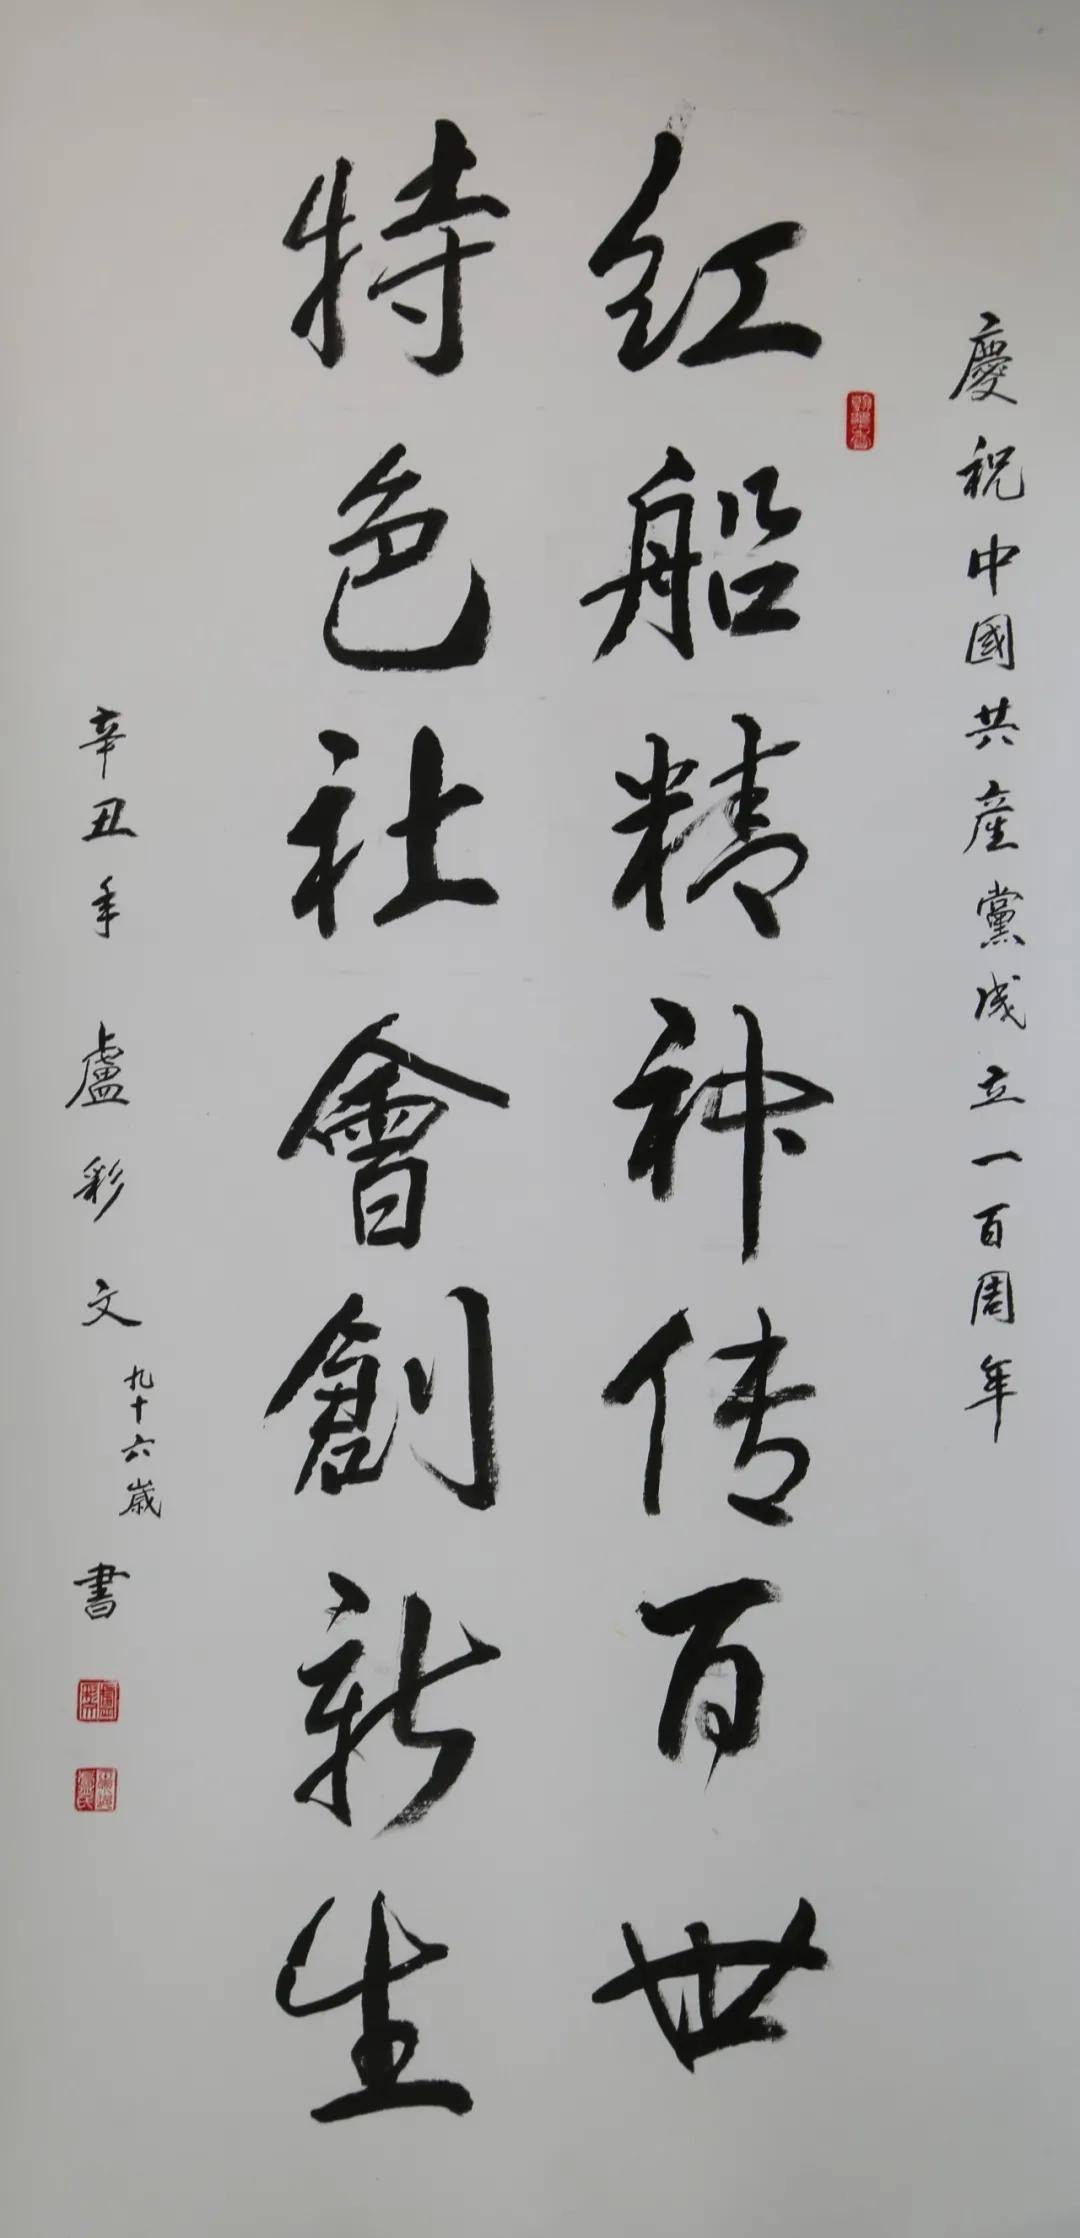 慶祝中國共産黨成立一百周年
红船精神传百世
特色社會創新生
辛丑年 盧彩文 九十六歲 書